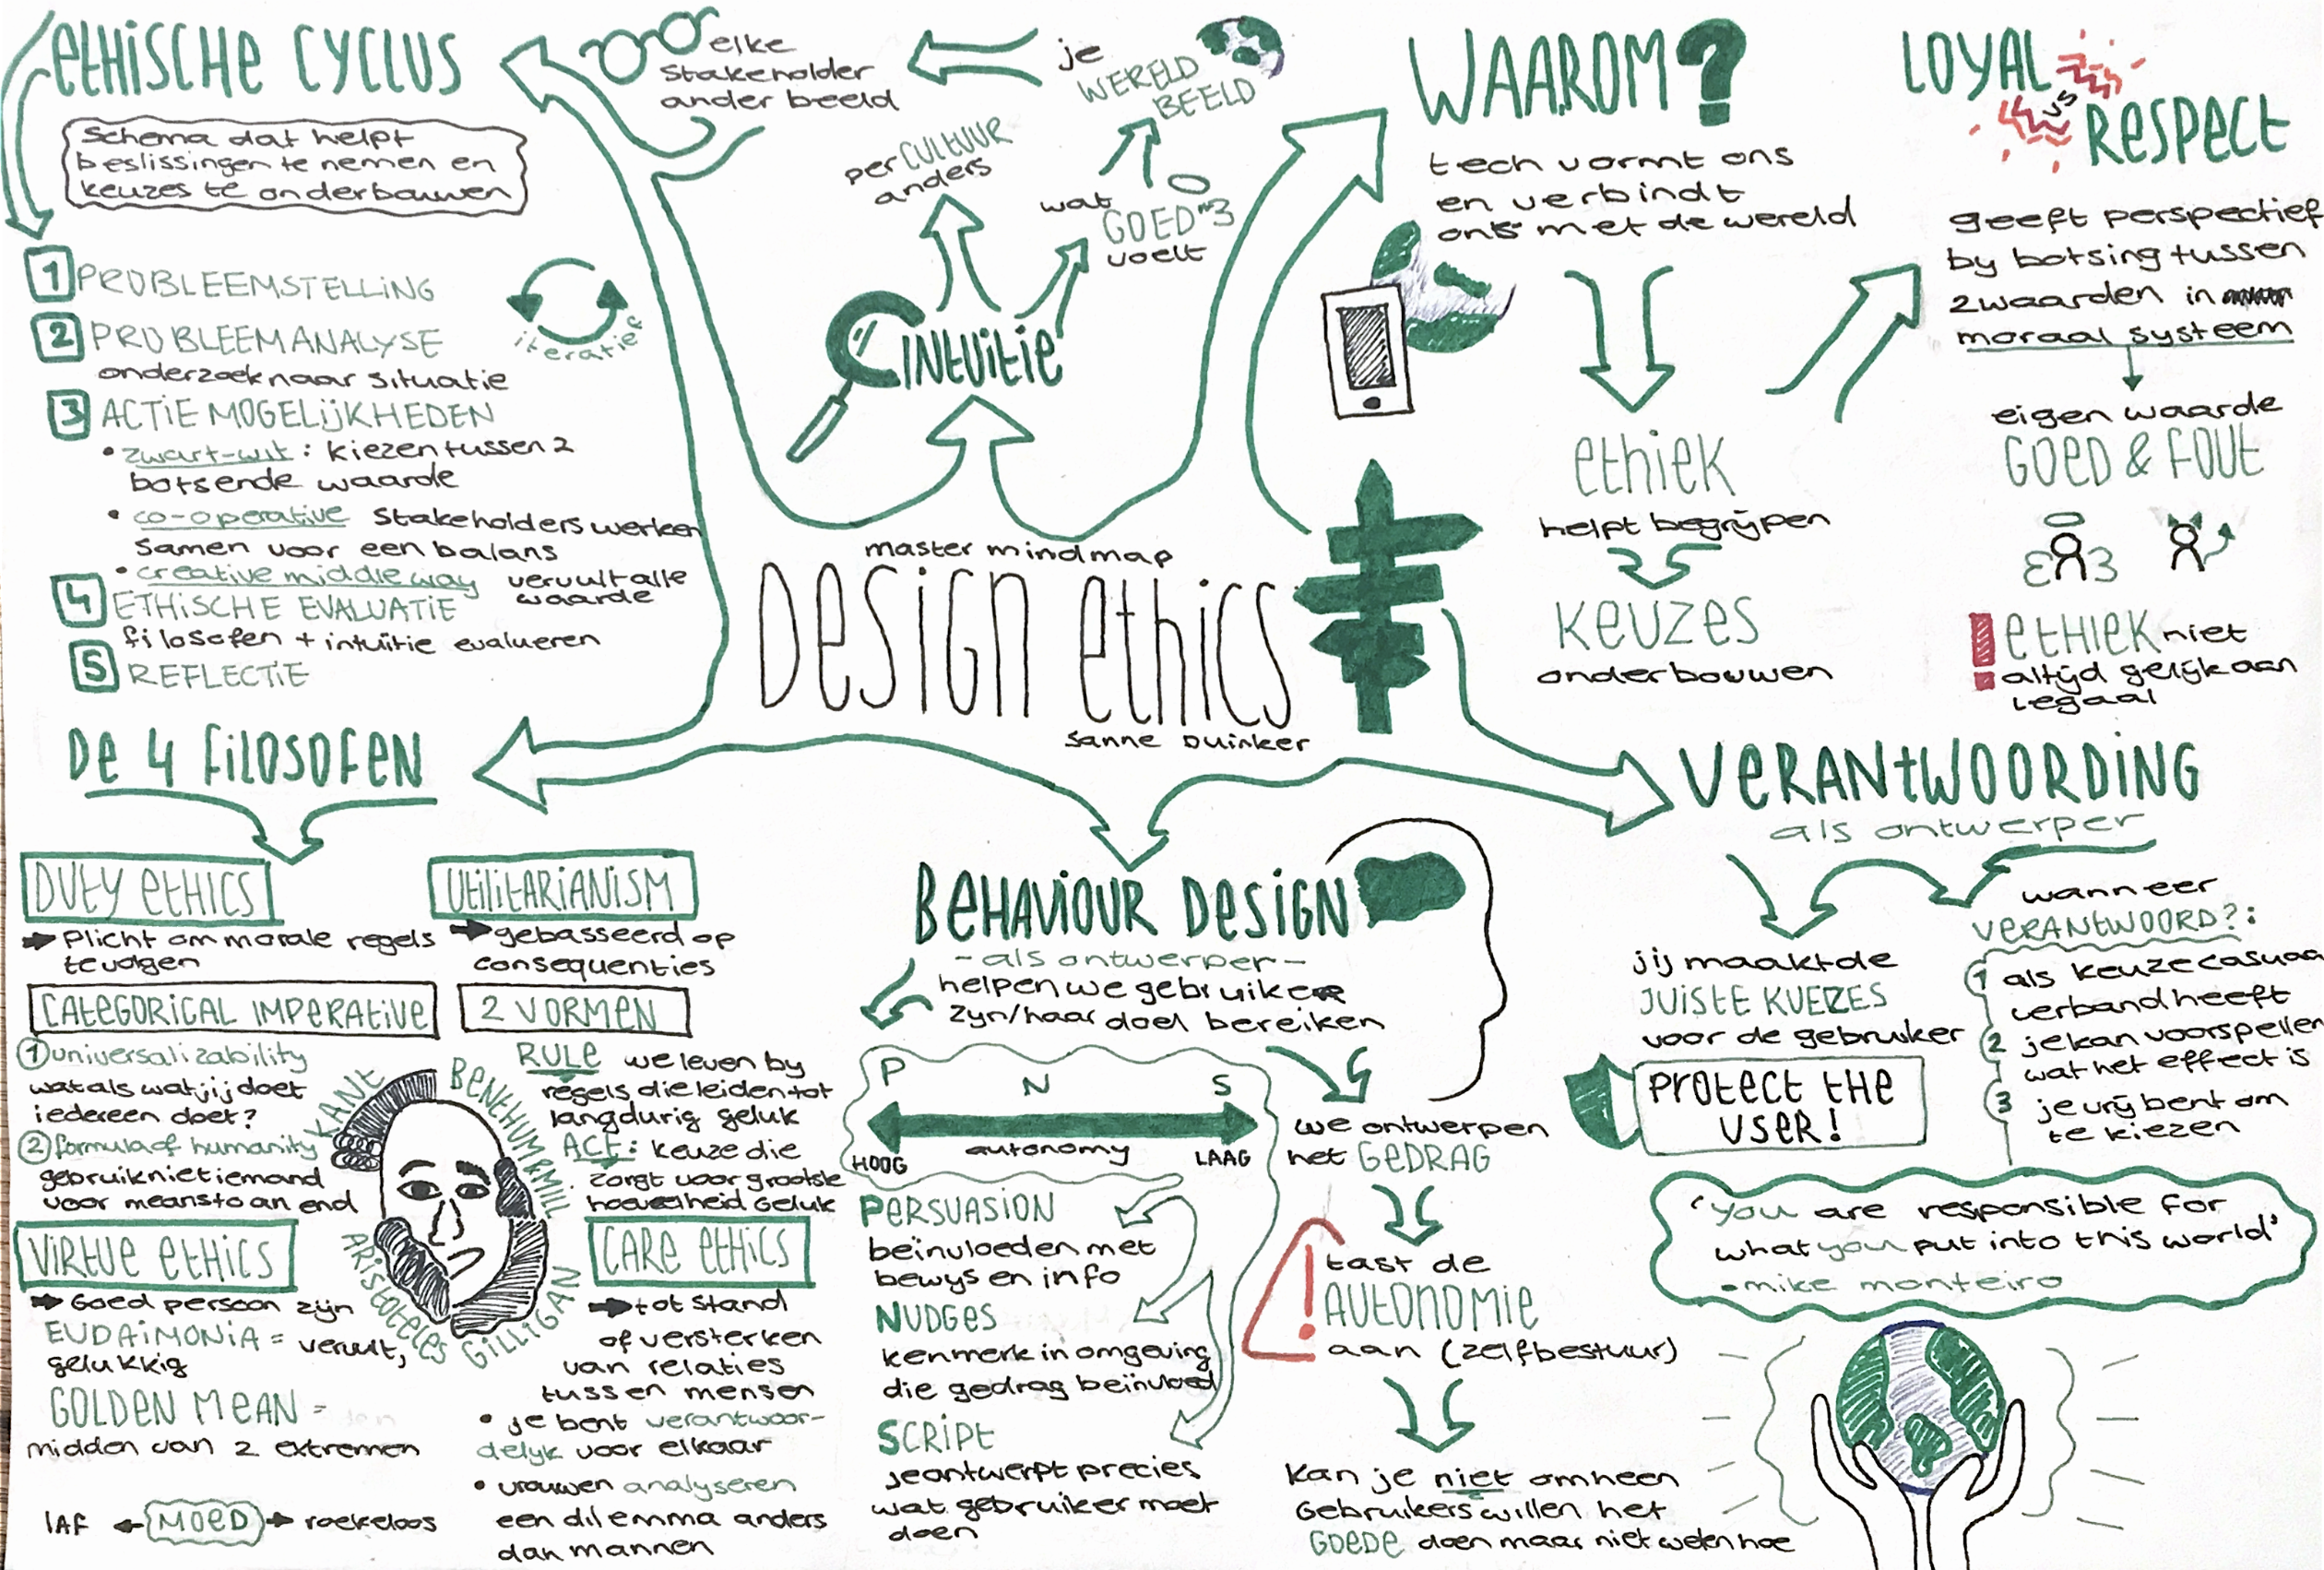 ETHISCHE CYCLUS
Schema dat helpt
beslissingen te nemen en
keuzes te onderbouwen
1 PROBLEEMSTELLING
2 PROBLEEMANALYSE
onderzoek naar situatie
3 ACTIE MOGELIJKHEDEN
• zwart-wit : kiezen tussen 2
botsende waarde
• co-operative Stakeholders werken
samen voor een balans
• creative middle way vervult alle
waarde
4 ETHISCHE EVALUATIE
filosofen + intuïtie evalueren
5 REFLECTIE
iteratief
elke
stakeholder
ander beeld
je
WERELD
BEELD
per CULTUUR
anders
wat
GOED
voelt
INTUITIE
WAAROM?
tech vormt ons
en verbindt
ons met de wereld
ethiek
helpt begrijpen
KEUZES
onderbouwen
LOYAL
VS
RESPECT
geeft perspectief
by botsing tussen
2 waarden in
moraal systeem
eigen waarde
GOED & FOUT
! ETHIEK niet
altijd gelijk aan
legaal
master mindmap
DESIGN ETHICS
Sanne Duinker
DE 4 FILOSOFEN
DUTY ETHICS
Plicht om morale regels
te volgen
CATEGORICAL IMPERATIVE
1 universalizability
wat als wat jij doet
iedereen doet?
2 formula of humanity
gebruik niet iemand
voor means to an end
UTILITARIANISM
gebasseerd op
consequenties
2 VORMEN
RULE we leven by
regels die leiden tot
langdurig geluk
ACT: keuze die
zorgt voor grootste
hoeveelheid geluk
KANT
BENTHUM & MILL
ARISTOTELES
GILLIGAN
VIRTUE ETHICS
Goed persoon zijn
EUDAIMONIA = vervult,
gelukkig
GOLDEN MEAN =
midden van 2 extremen
LAF MOED roekeloos
CARE ETHICS
tot stand
of versterken
van relaties
tussen mensen
• je bent verantwoor-
delyk voor elkaar
• vrouwen analyseren
een dilemma anders
dan mannen
BEHAVIOUR DESIGN
- als ontwerper -
helpen we gebruiker
zyn/haar doel bereiken
P N S
autonomy
HOOG LAAG
PERSUASION
beïnvloeden met
bewys en info
NUDGES
kenmerk in omgeving
die gedrag beïnvloed
SCRIPT
je ontwerpt precies
wat gebruiker moet
doen
we ontwerpen
het GEDRAG
! tast de
AUTONOMIE
aan (zelfbestuur)
Kan je niet omheen
Gebruikers willen het
GOEDE doen maar niet weten hoe
VERANTWOORDING
als ontwerper
jij maakt de
JUISTE KUEZES
voor de gebruiker
PROTECT THE
USER!
wanneer
VERANTWOORD?:
1 als keuze casuaal
verband heeft
2 je kan voorspellen
wat het effect is
3 je vrij bent om
te kiezen
'you are responsible for
what you put into this world'
- mike monteiro